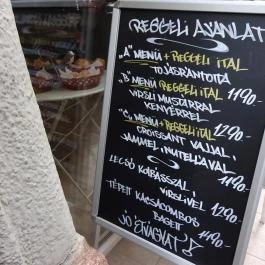 REGGELI AJANLAT
"A" MENÜ + REGGELI ITAL
TOJÁSRÁNTOTTA 1190-
"B" MENÜ REGGELI ITAL
VIRSLI MUSTÁRRAL 1190-
KENYÉRREL
"C" MENÜ + REGGELI ITAL
CROISSANT VAJJAL, 1290-
JAMMEL, NUTELLÁVAL
LECSÓ KOLBÁSSZAL,
VIRSLIVEL 1290-
TÉPETT KACSACOMBOS
BAGETT 1490-
JÓ ÉTVÁGYAT!